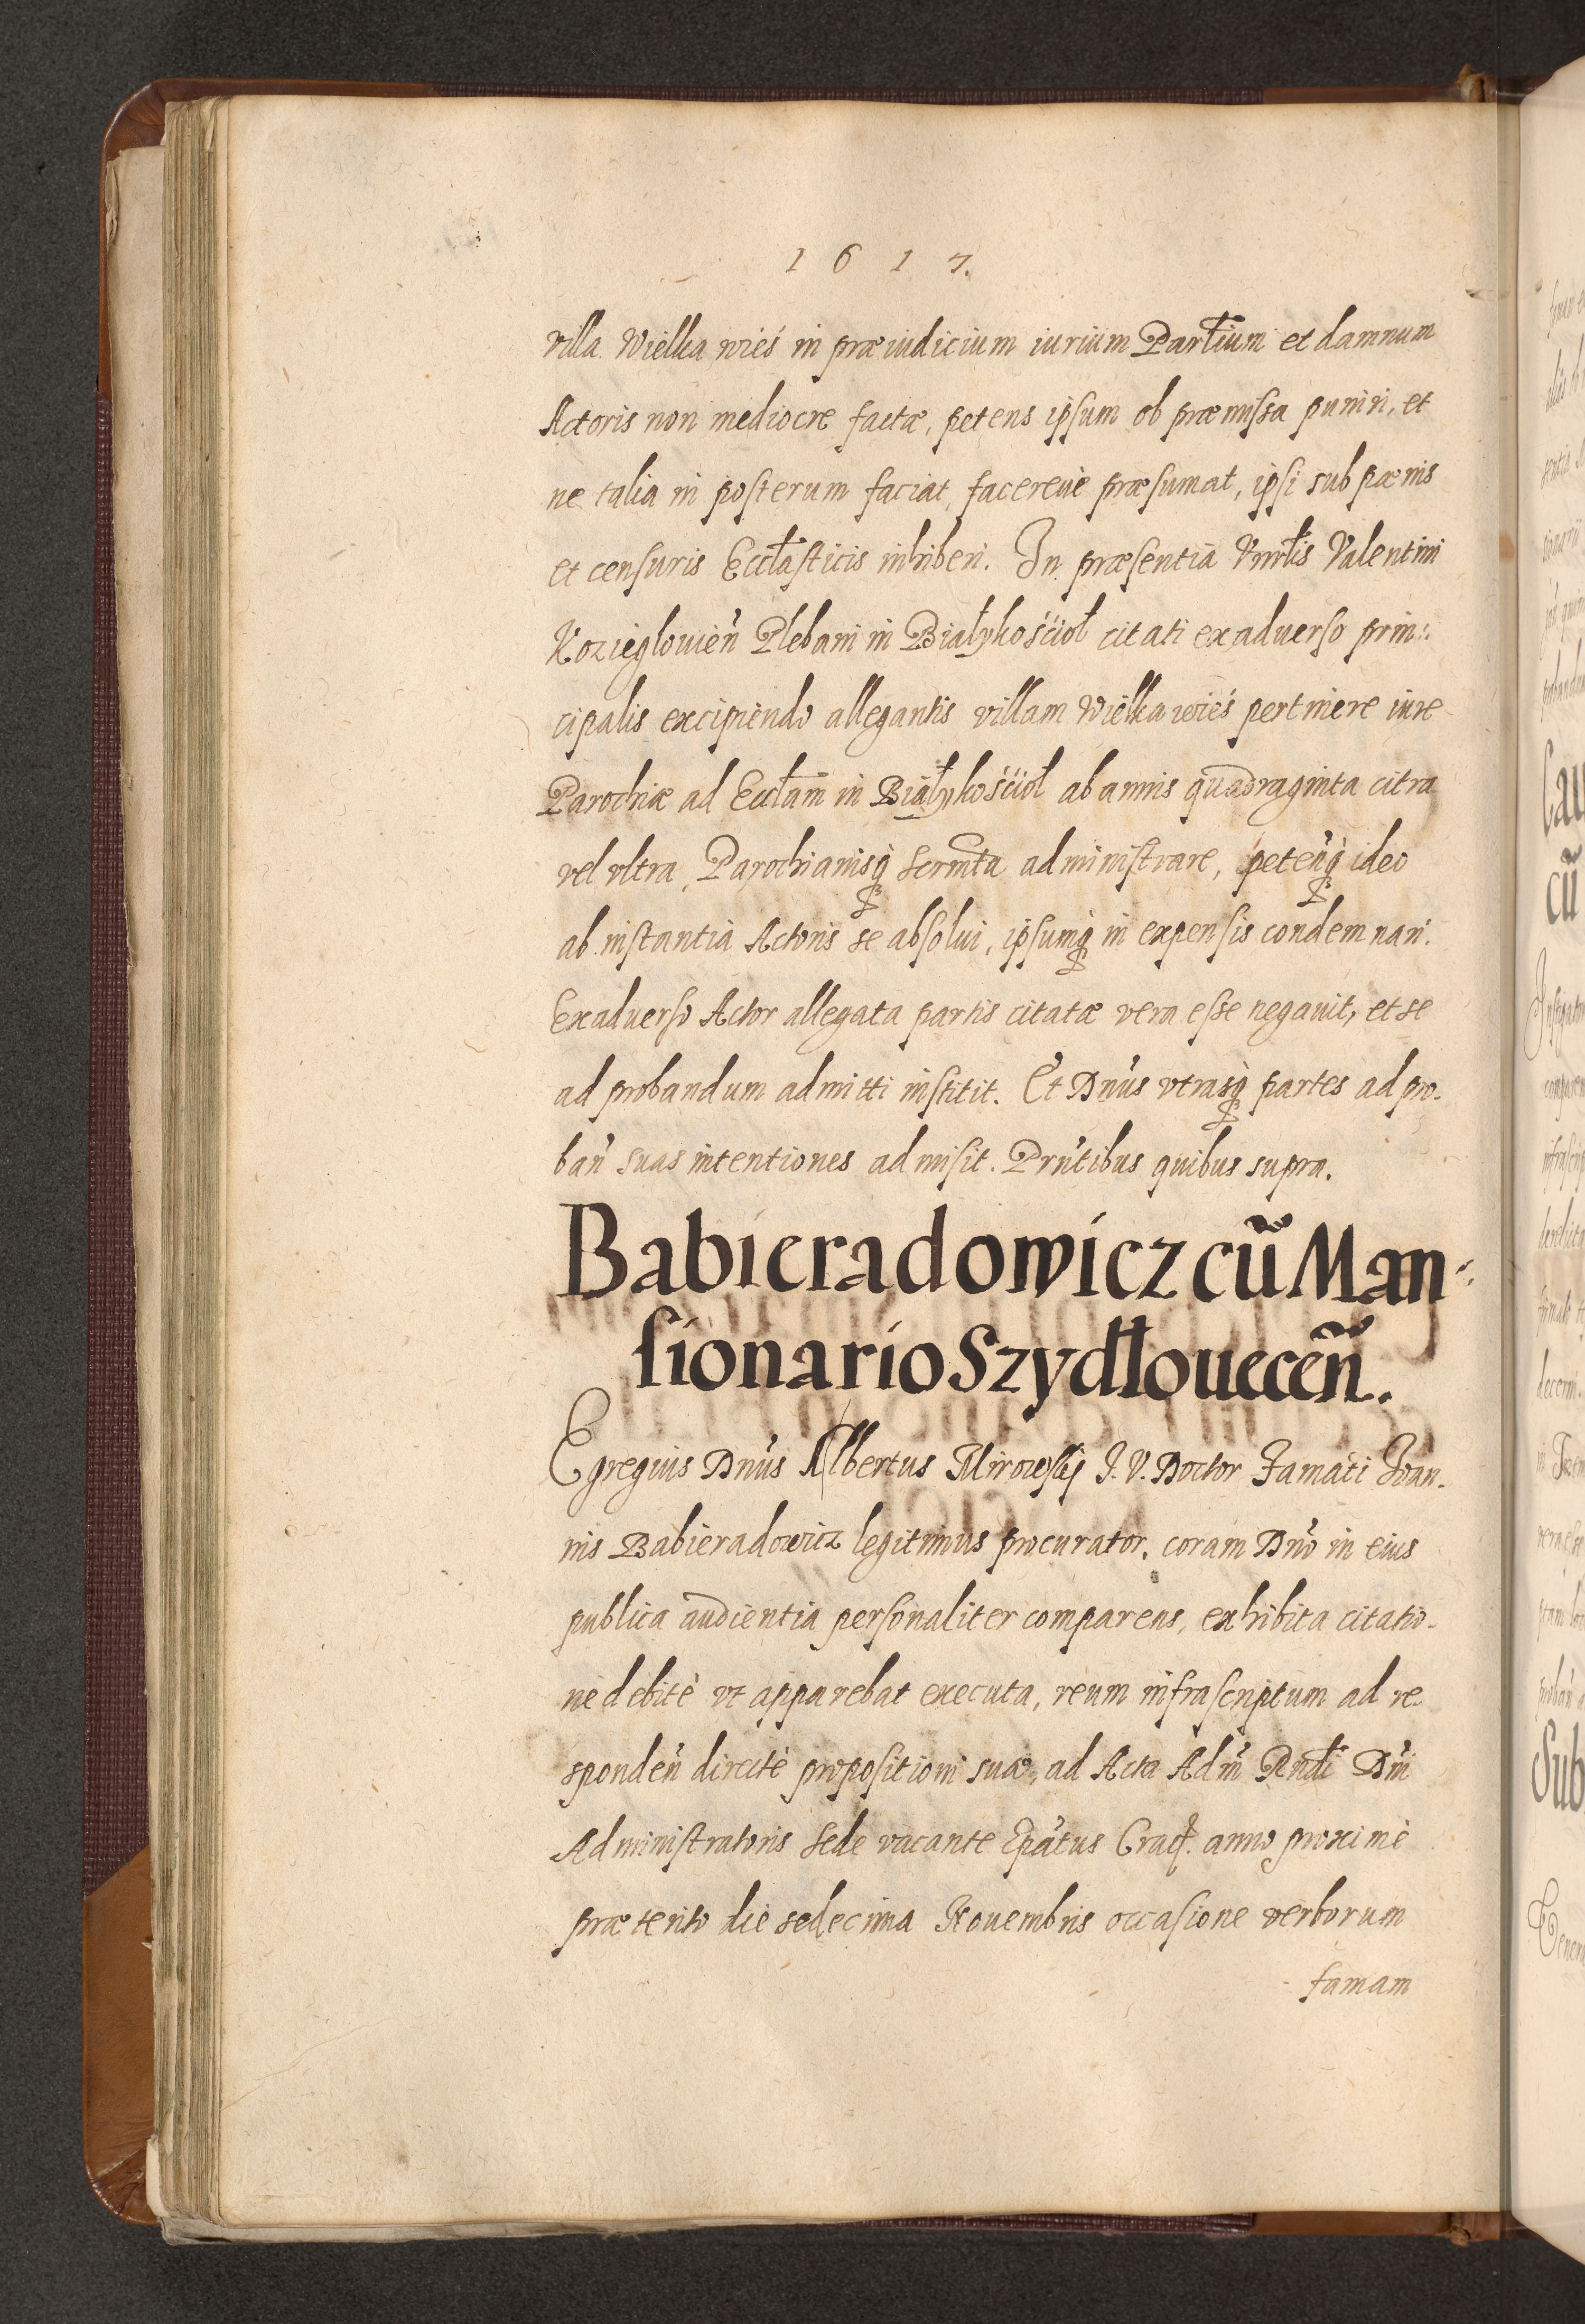 1617.
villa Wielka wieś in præiudicium iurium Partium et damnum
Actoris non mediocre factæ, petens ipsum ob præmissa puniri, et
ne talia in posterum faciat, facereuè præsumat, ipsi sub pænis
et censuris Eccłasticis inhiberi. In præsentia Vnrłis Valentini
Kozieglouień Plebani in Białykośćioł citati ex aduerso prin:
cipalis excipiendo allegantis villam Wielka wieś pertinere iure
Parochiæ ad Eccłam in Białykośćioł ab annis quadraginta citra
vel vltra, Parochianisq̃ Scrm̃ta administrare, peteñq̃ ideo
ab instantia Actoris se absolui, ipsumq̃ in expensis condemnari.
Ex aduerso Actor allegata partis citatæ vera esse negauit, et se
ad probandum admitti institit. Et Dñus vtrasq̃ partes ad pro-
bañ suas intentiones admisit. Prñtibus quibus supra.
Babieradowicz cũ Man:
sionario Szydłoueceñ.
Egregius Dñus Albertus Mirowskj J. V. Doctor Famati Joan-
nis Babieradowicz legitimus procurator, coram Dño in eius
publica audientia personaliter comparens, exhibita citatio-
ne debitè vt apparebat executa, reum infrascriptum ad re
spondeñ directè propositioni suæ, ad Acta Adm̃ Rndi Dñi
Administratoris Sede vacante Epãtus Crac̃. anno proximè
præterito die sedecima Nouembris occasione verborum
famam